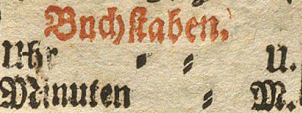 Buchſtaben.
Uhr ⸗ ⸗ U.
Minuten ⸗ M.